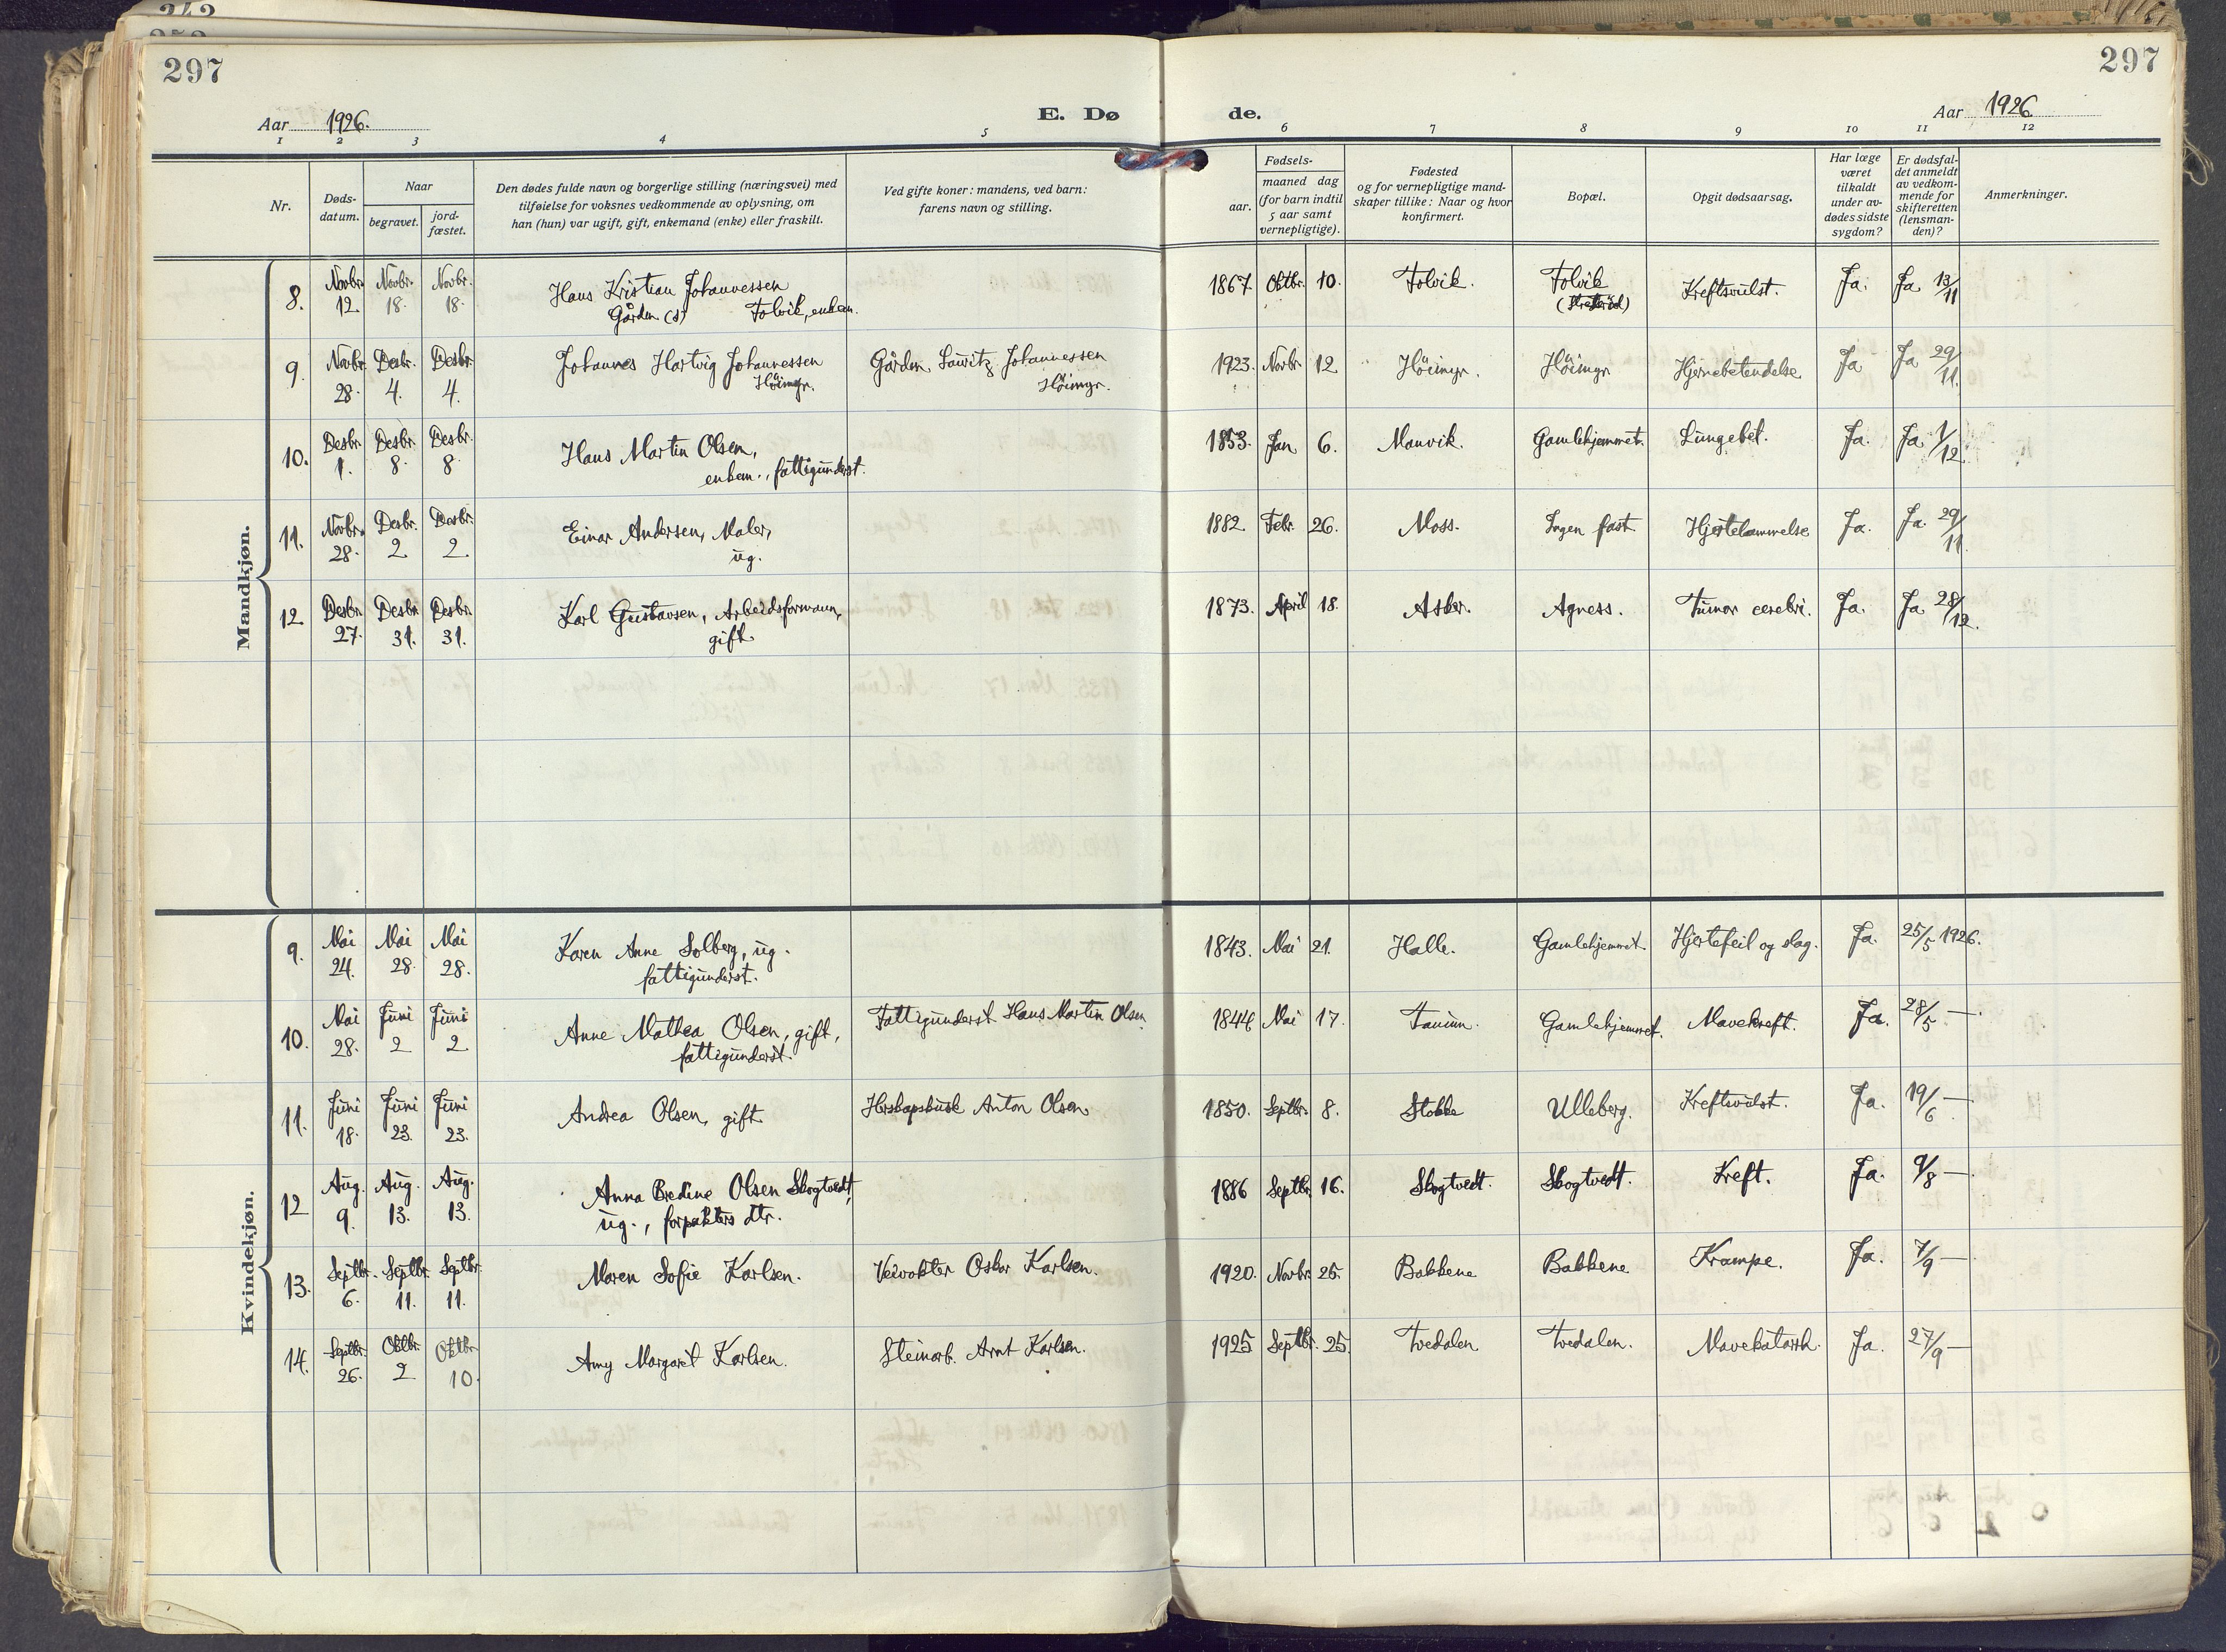 242
297
297
Aar 1926.
E. Dø
de.
Aar 1926
1 2 3 4 5 6 7 8 9 10 11 12
Nr.
Døds-
datum.
Naar
begravet.
jord-
fæstet.
Den dødes fulde navn og borgerlige stilling (næringsvei) med
tilføielse for voksnes vedkommende av oplysning, om
han (hun) var ugift, gift, enkemand (enke) eller fraskilt.
Ved gifte koner: mandens, ved barn:
farens navn og stilling.
Fødsels-
aar.
maaned dag
(for barn indtil
5 aar samt
vernepligtige).
Fødested
og for vernepligtige mand-
skaper tillike: Naar og hvor
konfirmert.
Bopæl.
Opgit dødsaarsag.
Har læge
været
tilkaldt
under av-
dødes sidste
sygdom?
Er dødsfal-
det anmeldt
av vedkom-
mende for
skifteretten
(lensman-
den)?
Anmerkninger.
Mandkjøn.
8. Novbr. 12. Novbr. 18. Novbr. 18. Hans Kristian Johannessen 1867. Oktbr. 10. Folvik. Folvik Kreftsvulst. Ja. Ja 13/11
Gårdm. (s) Folvik, enkem.
9. Novbr. 28. Desbr. 4. Desbr. 4. Johannes Hartvig Johannessen Gårdm. Lauritz Johannessen 1923. Novbr. 12 Höimyr. Höimyr Hjernebetendelse Ja Ja 29/11.
Höimyr. Höimyr.
10. Desbr. 1. Desbr. 8. Desbr. 8. Hans Martin Olsen, 1853. Jan. 6. Manvik. Gamlehjemmet. Lungebet. Ja. Ja 1/12.
enkem., fattigunderst.
11. Novbr. 28. Desbr. 2 Desbr. 2. Einar Andersen, Maler, 1882. Febr. 26. Moss. Ingen fast. Hjertelammelse Ja. Ja 29/11.
ug.
12 Desbr. 27. Desbr. 31. Desbr. 31. Karl Gustavsen, Arbeidsformann, 1873. April 18. Asker. Agness. Tumor cerebri. Ja. Ja 28/12.
gift.
Kvindekjøn.
9. Mai 24. Mai 28. Mai 28. Karen Anne Solberg, ug. 1843. Mai 21. Halle. Gamlehjemmet. Hjertefeil og slag. Ja. 25/5 1926.
fattigunderst.
10. Mai 28. Juni 2 Juni 2. Anne Mathea Olsen, gift, Fattigunderst. Hans Martin Olsen. 1844. Mai 17. Tanum. Gamlehjemmet. Mavekreft. Ja. 28/5 —
fattigunderst.
11. Juni 18. Juni 23. Juni 23. Andrea Olsen, gift. Herskapskusk Anton Olsen 1850. Septbr. 8. Stokke Ulleberg. Kreftsvulst. Ja. 19/6 —
12 Aug. 9. Aug. 13. Aug. 13. Anna Bredine Olsen Skogtvedt, 1886 Septbr. 16. Skogtvedt. Skogtvedt. Kreft. Ja. 9/8 —
ug., forpakters dtr.
13. Septbr. 6. Septbr. 11. Septbr. 11. Maren Sofie Karlsen. Veivokter Oskar Karlsen. 1920. Novbr. 25. Bakkene Bakkene Krampe. Ja. 7/9 —
14. Septbr. 26. Oktbr. 2 Oktbr. 10. Amy Margaret Karlsen. Steinarb. Arnt Karlsen. 1925 Septbr. 25. Tvedalen Tvedalen. Mavekatarrh. Ja. 27/9 —